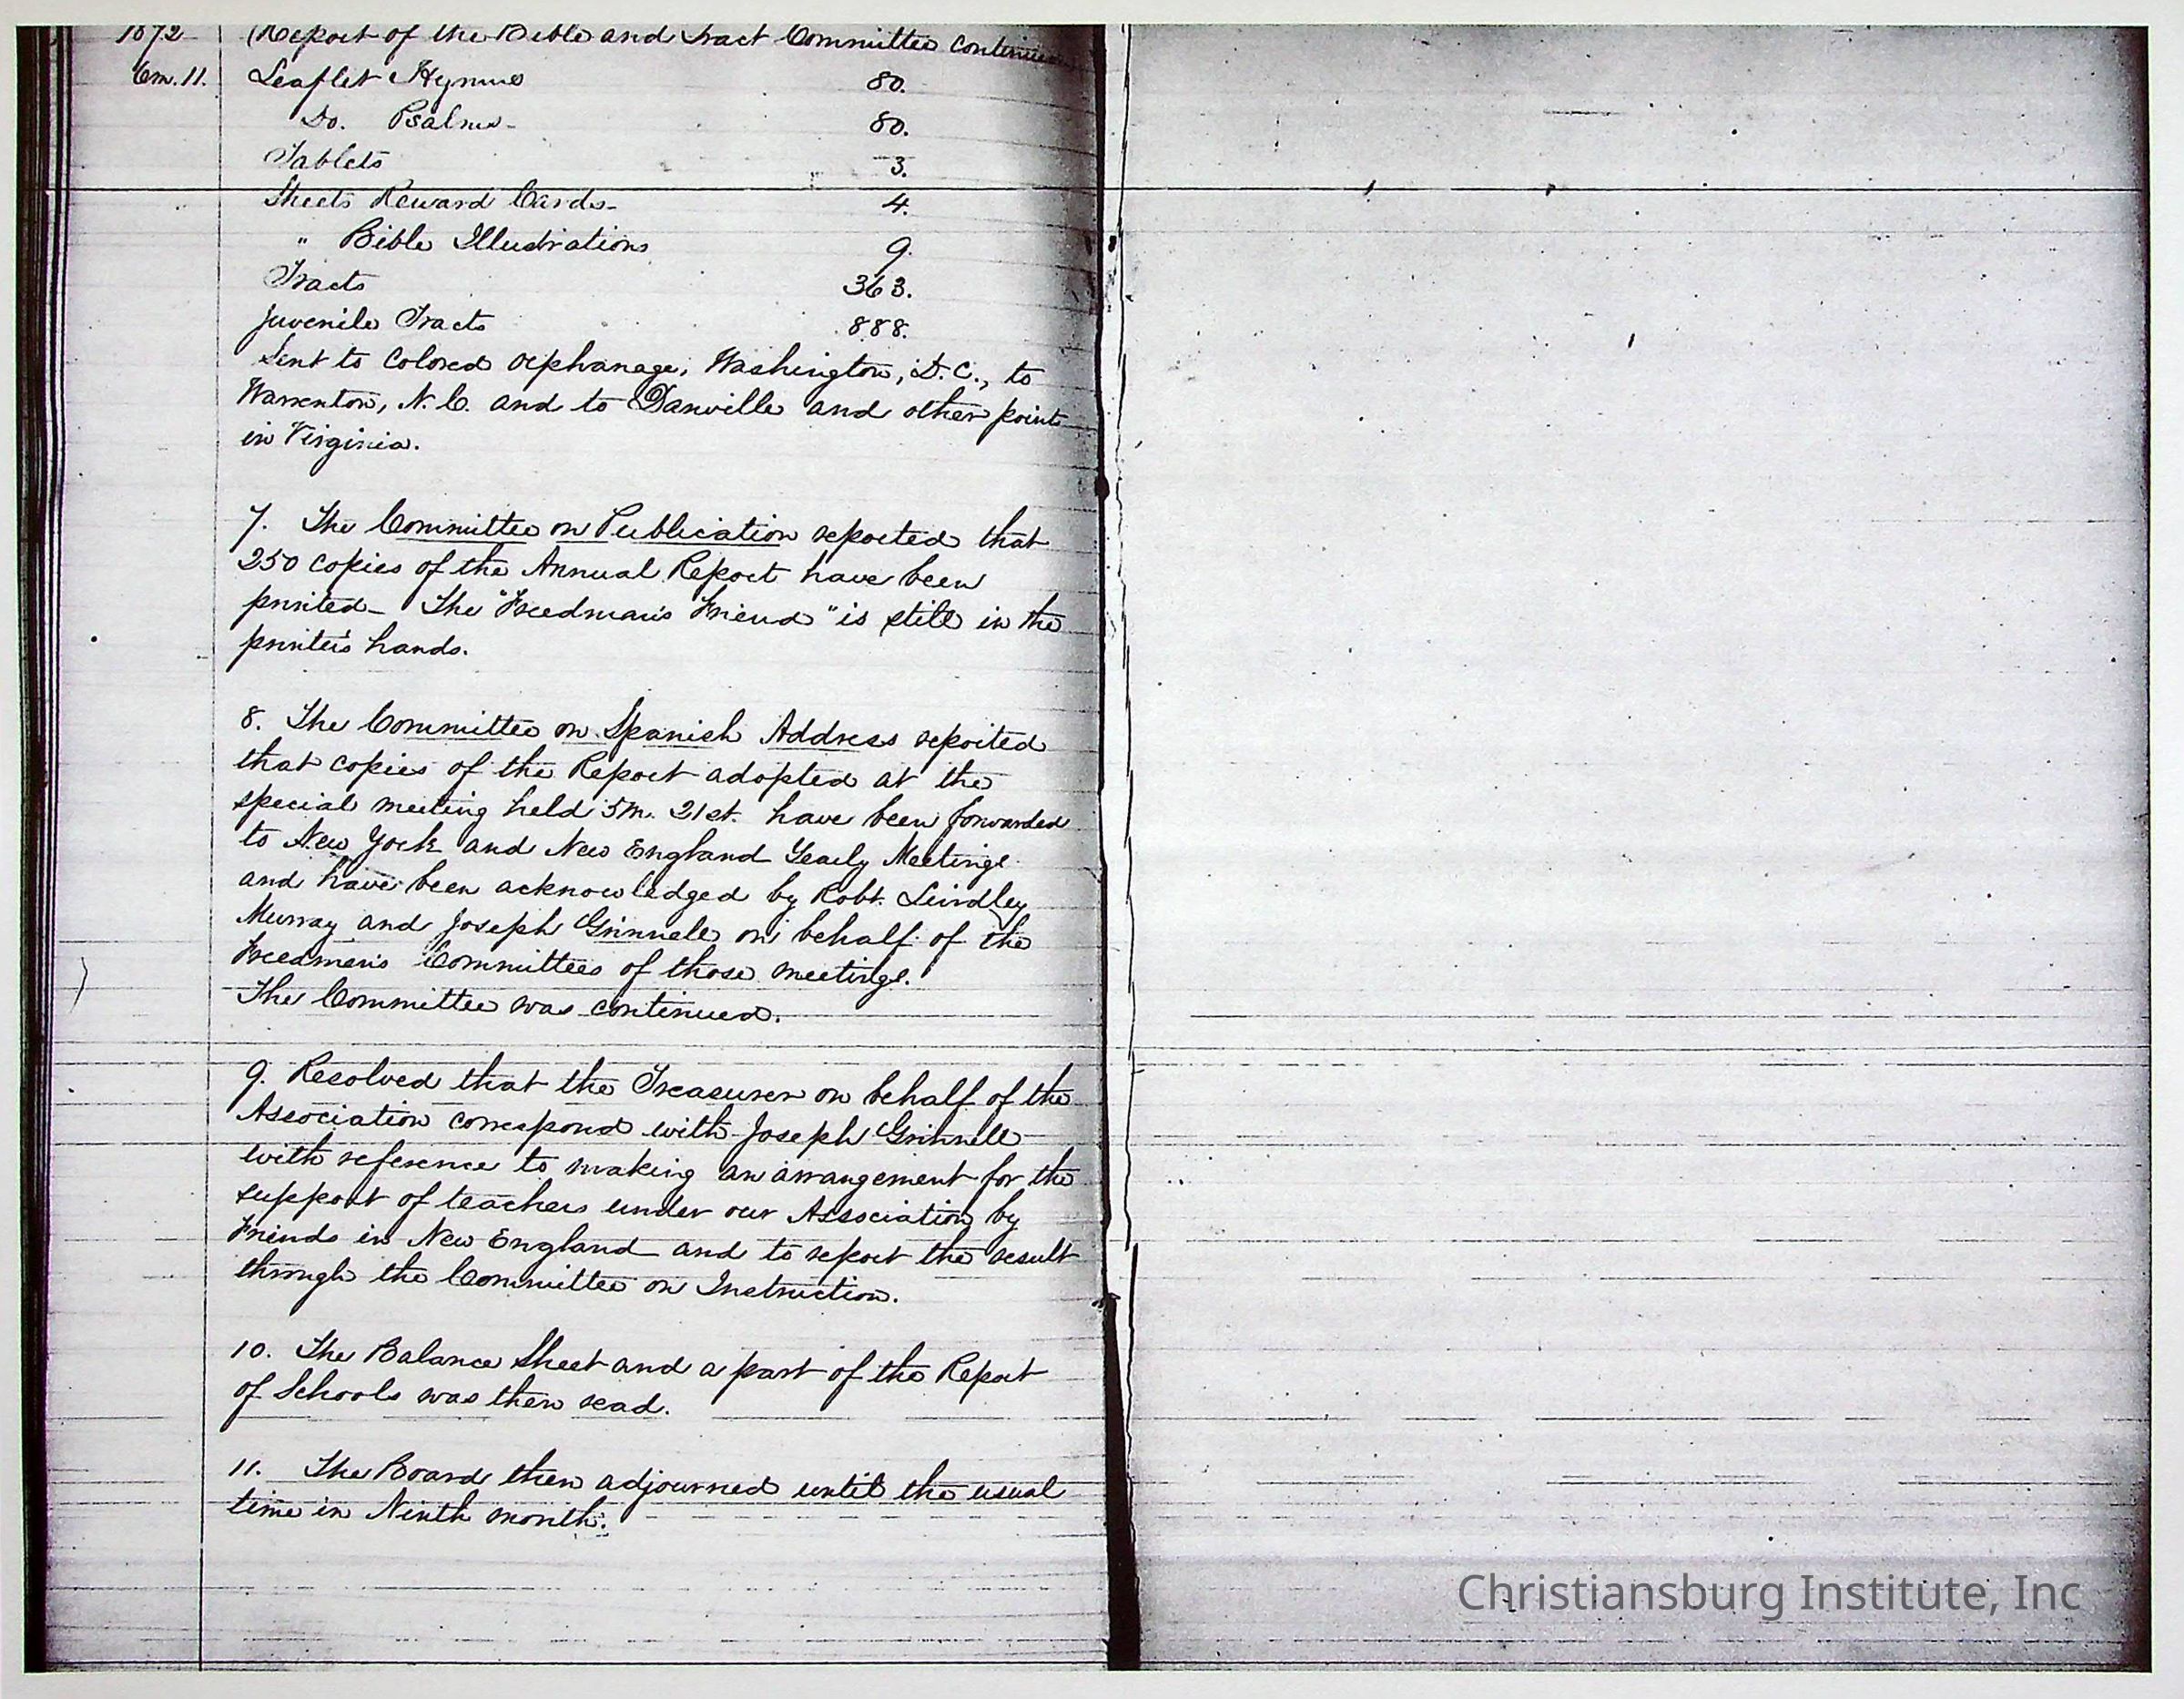 1872 (Report of the Bible and Tract Committee continued
6m.11. Leaflet Hymns 80.
Do. Psalms- 80.
Tablets 3.
Sheets Reward Cards- 4.
" Bible Illustrations 9.
Tracts 363.
Juvenile Tracts 888.
Sent to Colored Orphanage, Washington, D.C., to
Warrenton, N.C. and to Danville and other points
in Virginia.
7. The Committee on Publication reported that
250 copies of the Annual Report have been
printed- The "Freedman's Friend" is still in the
printer's hands.
8. The Committee on Spanish Address reported
that copies of the Report adopted at the
special meeting held 5m. 21st. have been forwarded
to New York and New England Yearly Meetings
and have been acknowledged by Robt. Lindley
Murray and Joseph Grinnell on behalf of the
Freedmen's Committees of those meetings.
The Committee was continued.
9. Resolved that the Treasurer on behalf of the
Association correspond with Joseph Grinnell
with reference to making an arrangement for the
support of teachers under our Association by
Friends in New England and to report the result
through the Committee on Instruction.
10. The Balance Sheet and a part of the Report
of Schools was then read.
11. The Board then adjourned until the usual
time in Ninth month.
Christiansburg Institute, Inc